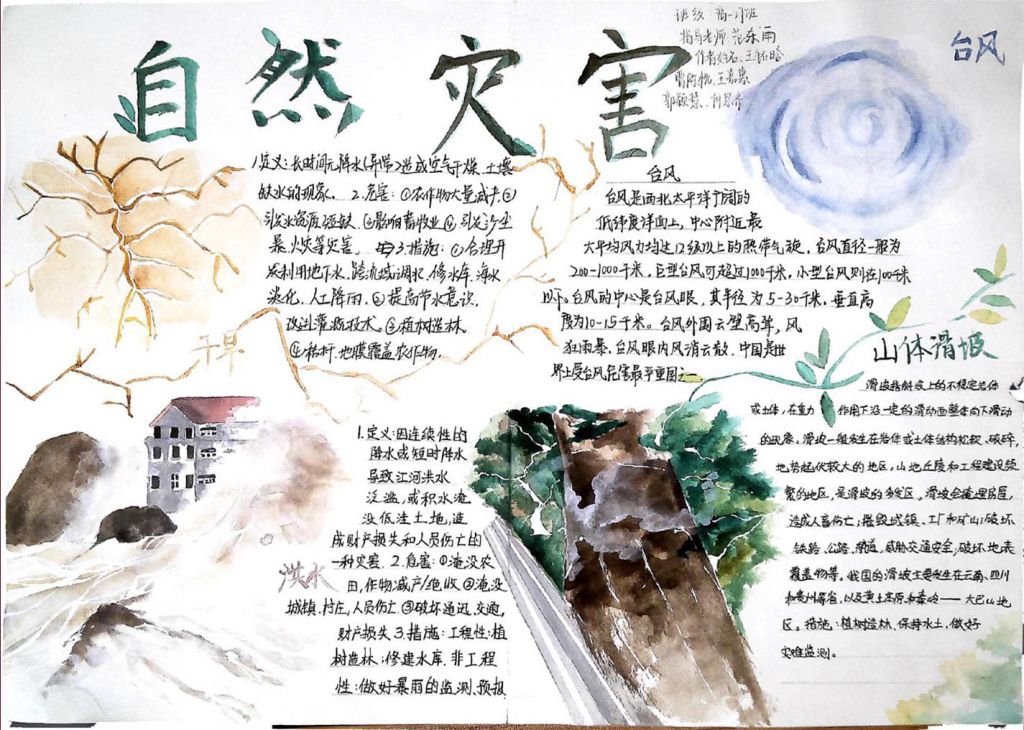 自然灾害
班级 高一
指导老师 范东雨
作者姓名 王
台风
1.定义:长时间无降水(异常)造成空气干燥、土壤
缺水的现象。2.危害:①农作物大量减产②
引发水资源短缺③影响畜牧业④引发沙尘
暴、火灾等灾害。3.措施:①合理开
发利用地下水、跨流域调水、修水库、海水
淡化、人工降雨。②提高节水意识,
改进灌溉技术。③植树造林
④秸秆、地膜覆盖农作物.
干旱
台风
台风是西北太平洋的
低纬度洋面上,中心附近最
大平均风力均达12级以上的热带气旋。台风直径一般为
200-1000千米,巨型台风可超过1000千米,小型台风则在100千米
以下。台风的中心是台风眼,其半径为5-30千米,垂直高
度为10-15千米。台风外围云壁高耸,风
狂雨暴,台风眼内风消云散.中国是世
界上受台风危害最严重国之一
山体滑坡
滑坡指斜坡上的不稳定岩体
或土体,在重力作用下沿一定的滑动面整体向下滑动
的现象。滑坡一般发生在岩体或土体结构松软、破碎,
地势起伏较大的地区,山地丘陵和工程建设频
繁的地区,是滑坡的多发区。滑坡会掩埋房屋,
造成人畜伤亡;摧毁城镇、工厂和矿山;破坏
铁路、公路、航道,威胁交通安全;破坏地表
覆盖物等。我国的滑坡主要发生在云南、四川
和贵州等省,以及黄土高原和秦岭——大巴山地
区。措施:植树造林、保持水土,做好
灾难监测。
洪水
1.定义:因连续性的
降水或短时降水
导致江河洪水
泛滥,或积水淹
没低洼土地,造
成财产损失和人员伤亡的
一种灾害.2.危害:①淹没农
田,作物减产/绝收②淹没
城镇、村庄,人员伤亡③破坏通迅、交通,
财产损失3.措施:工程性:植
树造林;修建水库.非工程
性:做好暴雨的监测、预报